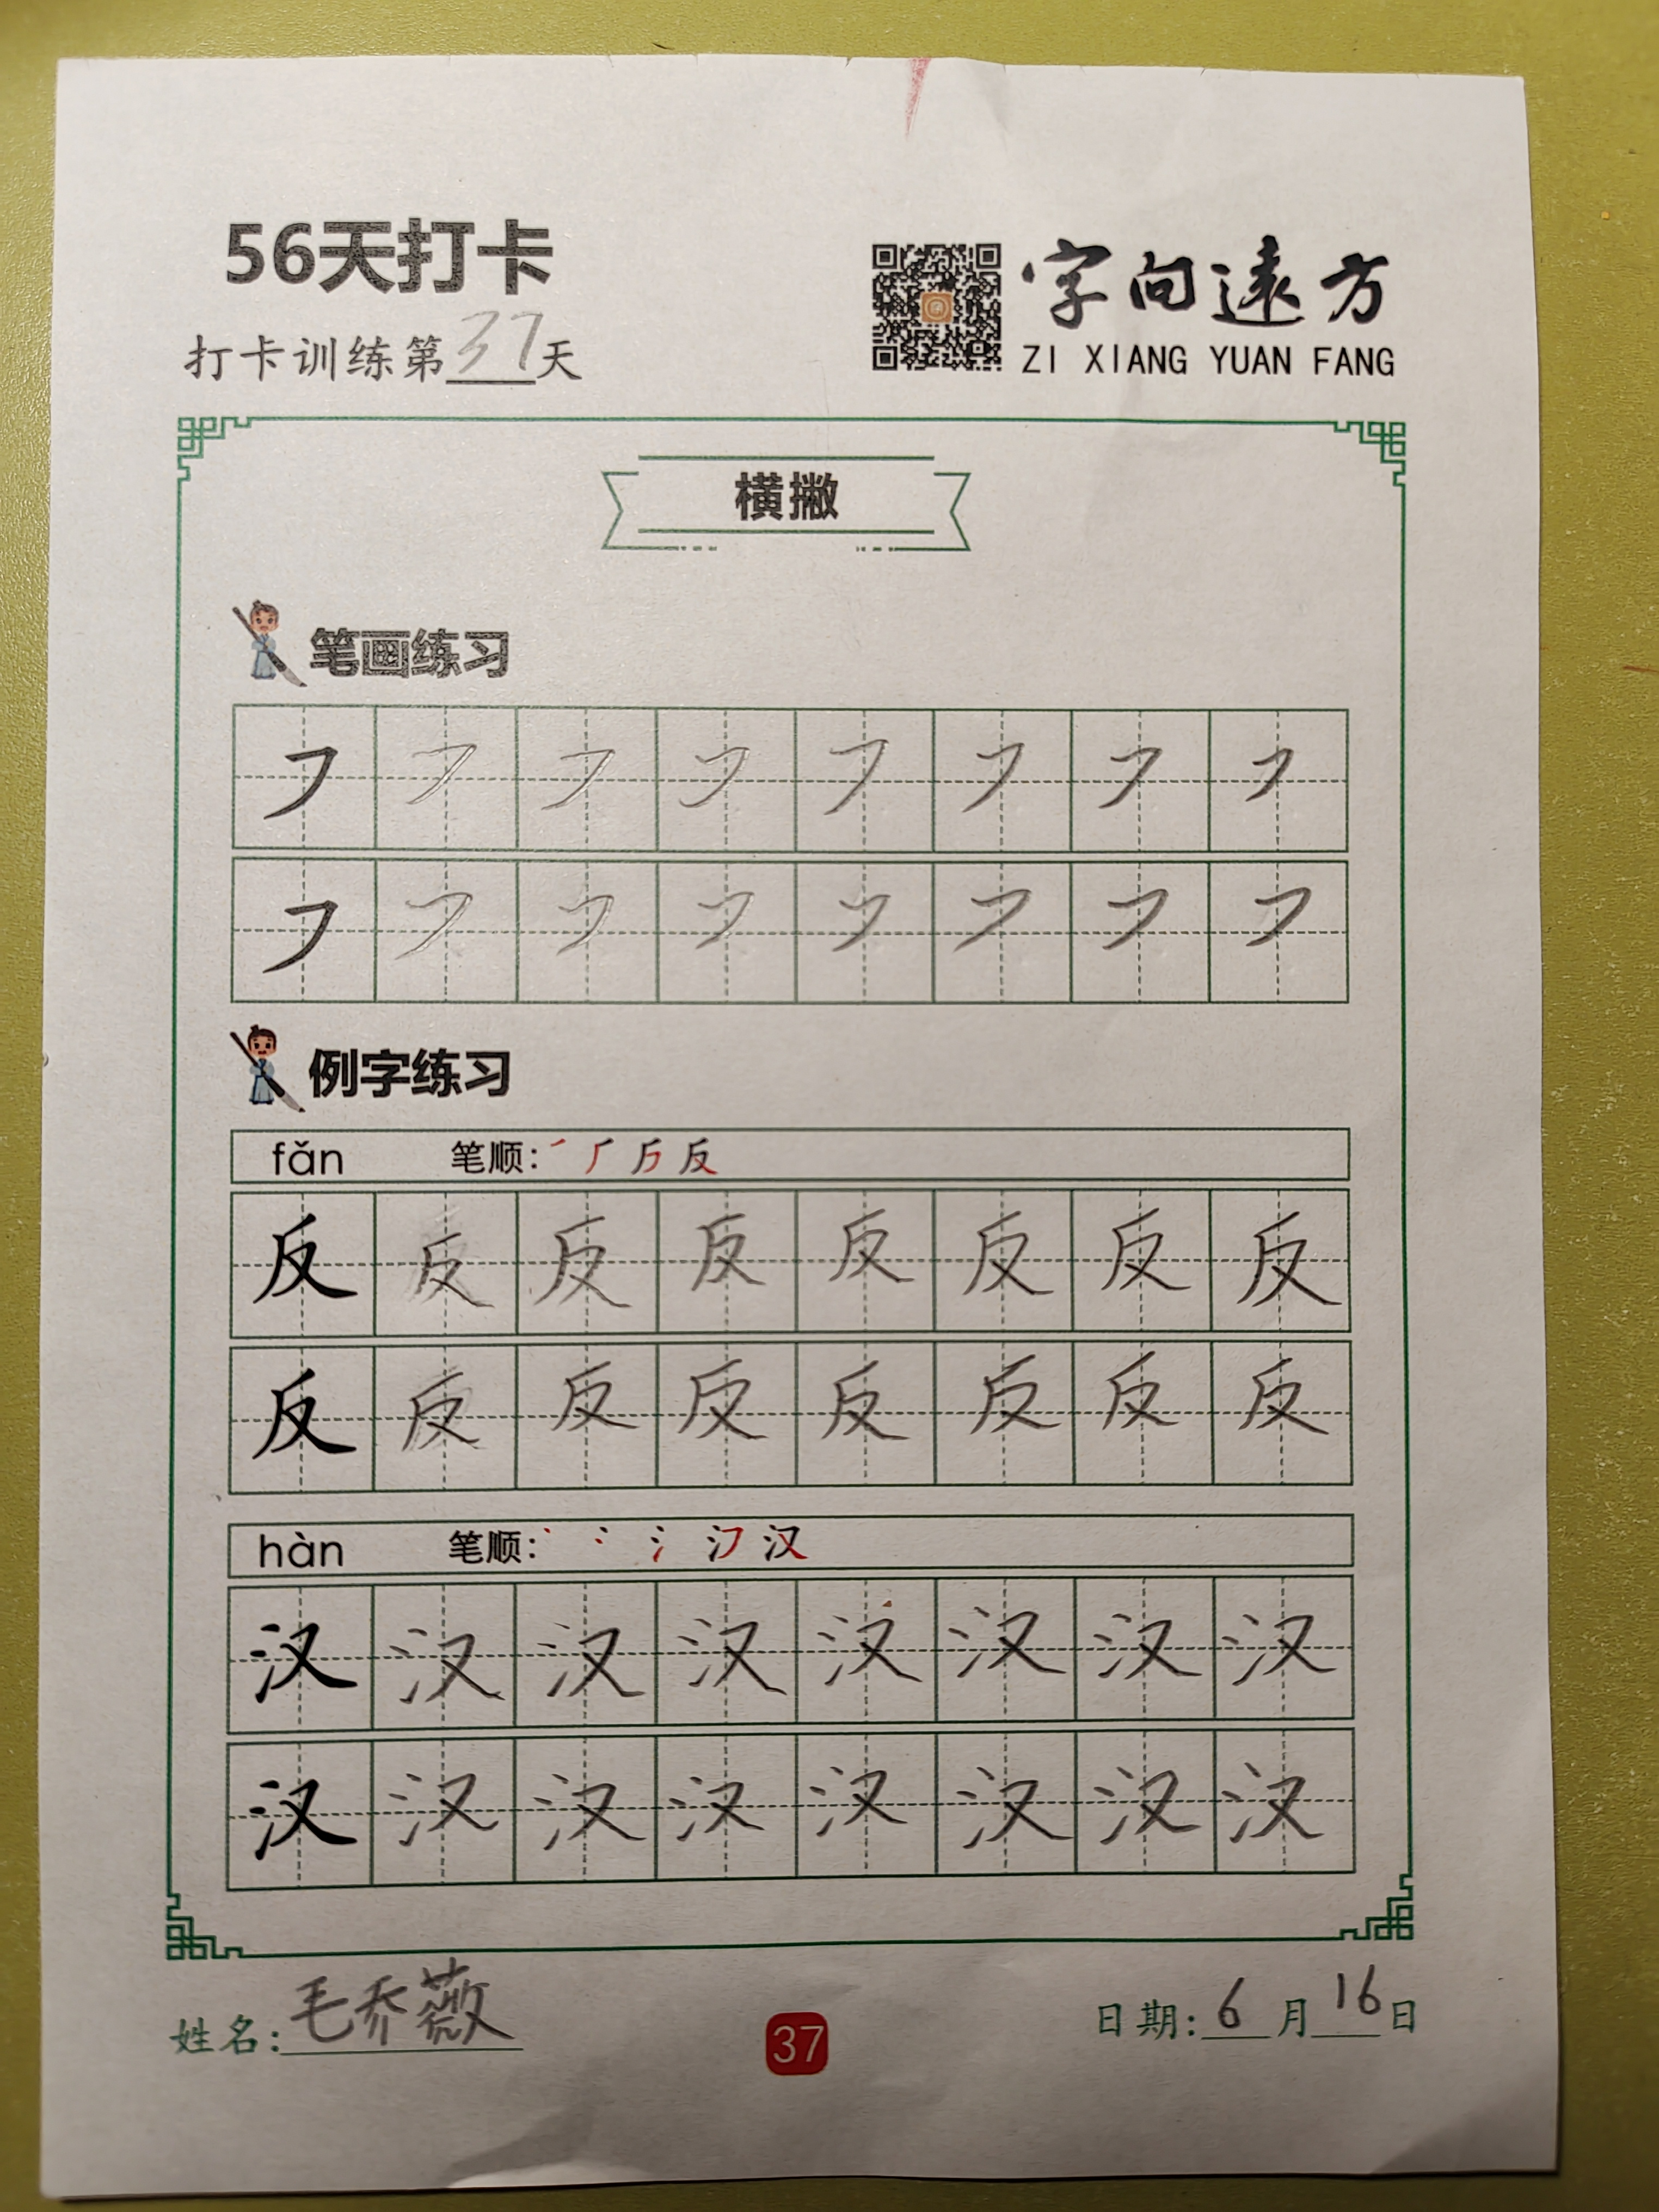 56天打卡
字向遠方
打卡训练第37天
ZI XIANG YUAN FANG
横撇
笔画练习
㇇ ㇇ ㇇ ㇇ ㇇ ㇇ ㇇ ㇇
㇇ ㇇ ㇇ ㇇ ㇇ ㇇ ㇇ ㇇
例字练习
fǎn 笔顺: 反
反 反 反 反 反 反 反 反
反 反 反 反 反 反 反 反
hàn 笔顺: 丶 冫 氵 汉
汉 汉 汉 汉 汉 汉 汉 汉
汉 汉 汉 汉 汉 汉 汉 汉
姓名:毛乔薇
37
日期:6月16日